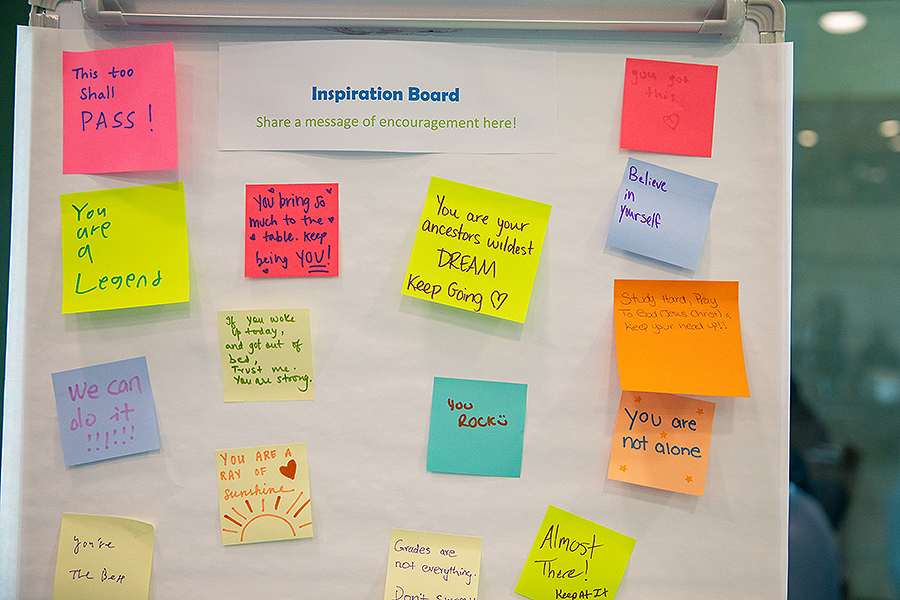 Inspiration Board
Share a message of encouragement here!
This too
Shall
PASS!
you got
this
You
are
a
Legend
You bring so
much to the
table. Keep
being YOU!
You are your
ancestors wildest
DREAM
Keep Going
Believe
in
yourself
If you woke
up today,
and got out of
bed,
Trust me.
You are strong.
Study Hard, Pray
To God (Jesus Christ) &
keep your head up!!
We can
do it
!!!!!!
You
ROCK
You are
not alone
YOU ARE A
RAY OF
sunshine
You're
The Best
Grades are
not everything.
Don't
Almost
There!
Keep At It